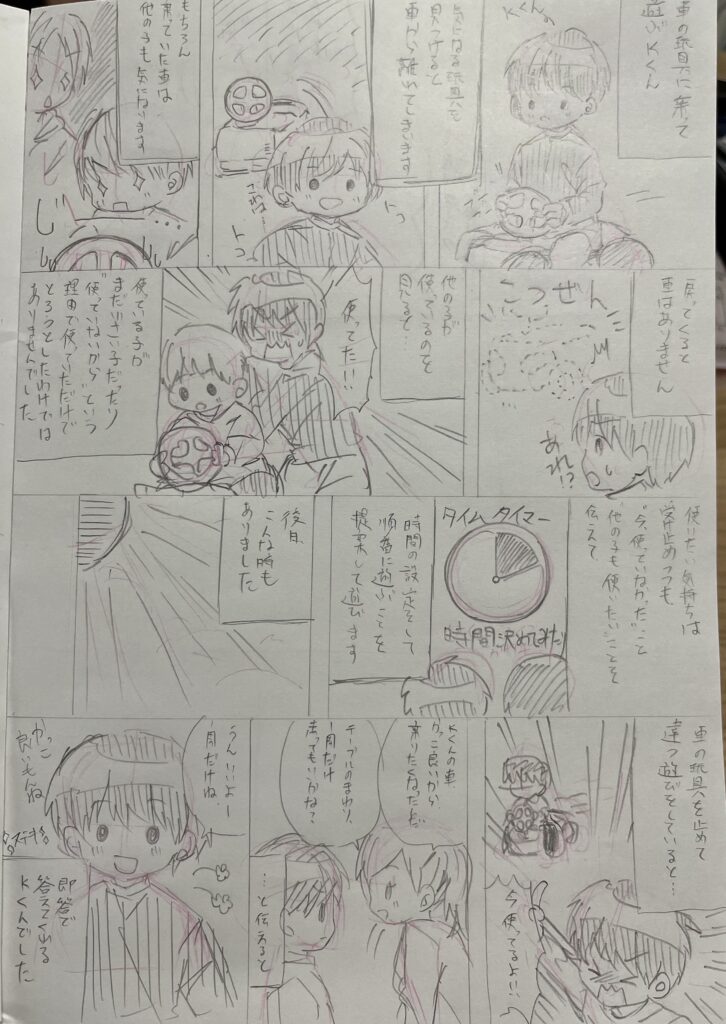 車の玩具に乗って
遊ぶKくん
Kくん
気になる玩具を
見つけると
車から離れてしまいます
これは…
トコ
トコ
もちろん
乗っていた車は
他の子も気になります
じー
戻ってくると
車はありません
こつぜん
あれ!?
他の子が
使っているのを
見ると…
使ってた!!!
使っている子が
まだ小さい子だったり
“使っていないから”という
理由で使っていただけで
とろうとしたわけでは
ありませんでした
使いたい気持ちは
受け止めつつも
“今、使っていなかった”こと
他の子も使いたいことを
伝えて
タイムタイマー
時間の設定をして
順番に遊ぶことを
提案して遊びます
後日
こんな時も
ありました
車の玩具を止めて
違う遊びをしていると…
今使ってるよ!!
Kくんの車
かっこ良いから
乗りたくなったんだ
テーブルのまわり、
一周だけ
走ってもいいかな?
…と伝えると
うんいいよー
一周だけね
かっこ
良いもんね
ステキ
即答で
答えてくれる
Kくんでした